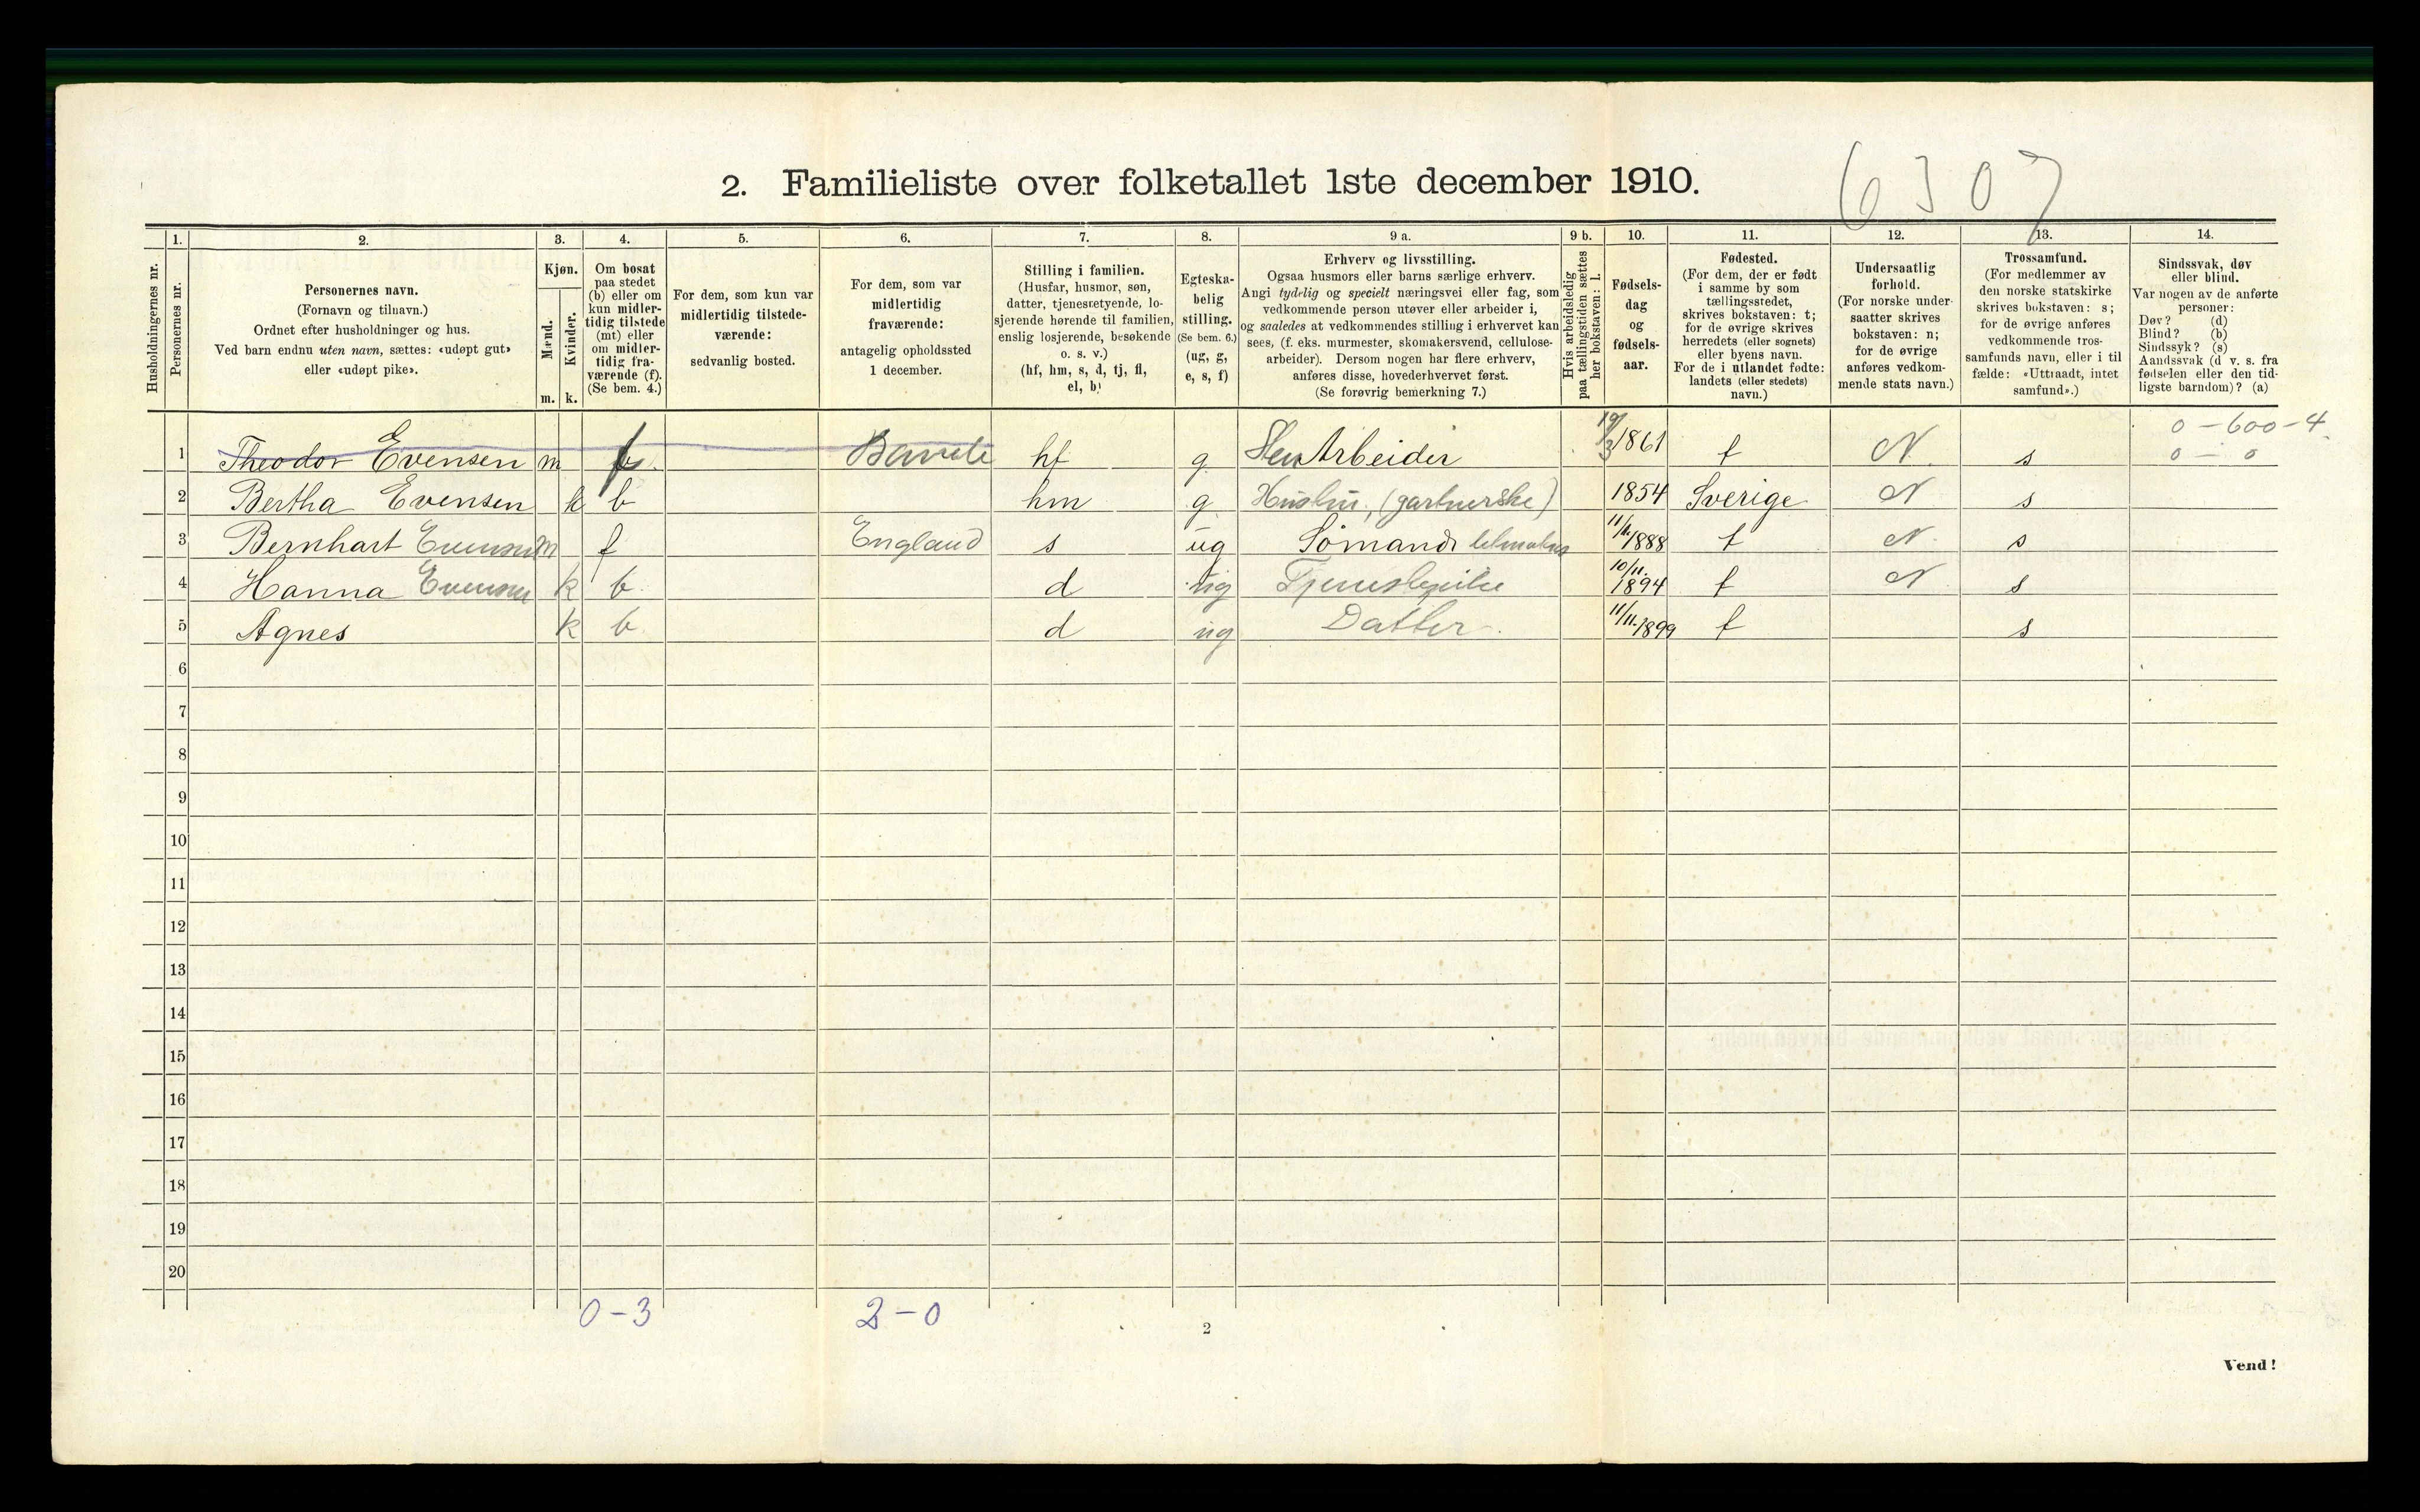 6307
2. Familieliste over folketallet 1ste december 1910.
1. 2. 3. 4. 5. 6. 7. 8. 9 a. 9 b. 10. 11. 12. 13. 14.
Husholdningernes nr.
Personernes nr.
Personernes navn.
(Fornavn og tilnavn.)
Ordnet efter husholdninger og hus.
Ved barn endnu uten navn, sættes: «udøpt gut»
eller «udøpt pike».
Kjøn.
Mænd.
Kvinder.
m. k.
Om bosat
paa stedet
(b) eller om
kun midler-
tidig tilstede
(mt) eller
om midler-
tidig fra-
værende (f).
(Se bem. 4.)
For dem, som kun var
midlertidig tilstede-
værende:
sedvanlig bosted.
For dem, som var
midlertidig
fraværende:
antagelig opholdssted
1 december.
Stilling i familien.
(Husfar, husmor, søn,
datter, tjenestetyende, lo-
sjerende hørende til familien,
enslig losjerende, besøkende
o. s. v.)
(hf, hm, s, d, tj, fl,
el, b)
Egteska-
belig
stilling.
(Se bem. 6.)
(ug, g,
e, s, f)
Erhverv og livsstilling.
Ogsaa husmors eller barns særlige erhverv.
Angi tydelig og specielt næringsvei eller fag, som
vedkommende person utøver eller arbeider i,
og saaledes at vedkommendes stilling i erhvervet kan
sees, (f. eks. murmester, skomakersvend, cellulose-
arbeider). Dersom nogen har flere erhverv,
anføres disse, hovederhvervet først.
(Se forøvrig bemerkning 7.)
Hvis arbeidsledig
paa tællingstiden sættes
her bokstaven: l.
Fødsels-
dag
og
fødsels-
aar.
Fødested.
(For dem, der er født
i samme by som
tællingsstedet,
skrives bokstaven: t;
for de øvrige skrives
herredets (eller sognets)
eller byens navn.
For de i utlandet fødte:
landets (eller stedets)
navn.)
Undersaatlig
forhold.
(For norske under-
saatter skrives
bokstaven: n;
for de øvrige
anføres vedkom-
mende stats navn.)
Trossamfund.
(For medlemmer av
den norske statskirke
skrives bokstaven: s;
for de øvrige anføres
vedkommende tros-
samfunds navn, eller i til
fælde: «Uttraadt, intet
samfund».)
Sindssvak, døv
eller blind.
Var nogen av de anførte
personer:
Døv? (d)
Blind? (b)
Sindssyk? (s)
Aandssvak (d v. s. fra
fødselen eller den tid-
ligste barndom)? (a)
0 - 600 - 4
1 Theodor Evensen m f. hf g. Arbeider 19/3 1861 t N. s 0 - 0
2 Bertha Evensen k b hm g. Hustru, (gartnerske) 1854 Sverige N s
3 Bernhart Evensen m f England s ug Sømand 1888 t N. s
4 Hanna Evensen k b. d ug Tjenestepike 10/11. 1894 t N s
5 Agnes k b. d ug Datter 11/11. 1899 t s
6
7
8
9
10
11
12
13
14
15
16
17
18
19
20
0 - 3 2 - 0
2
Vend!